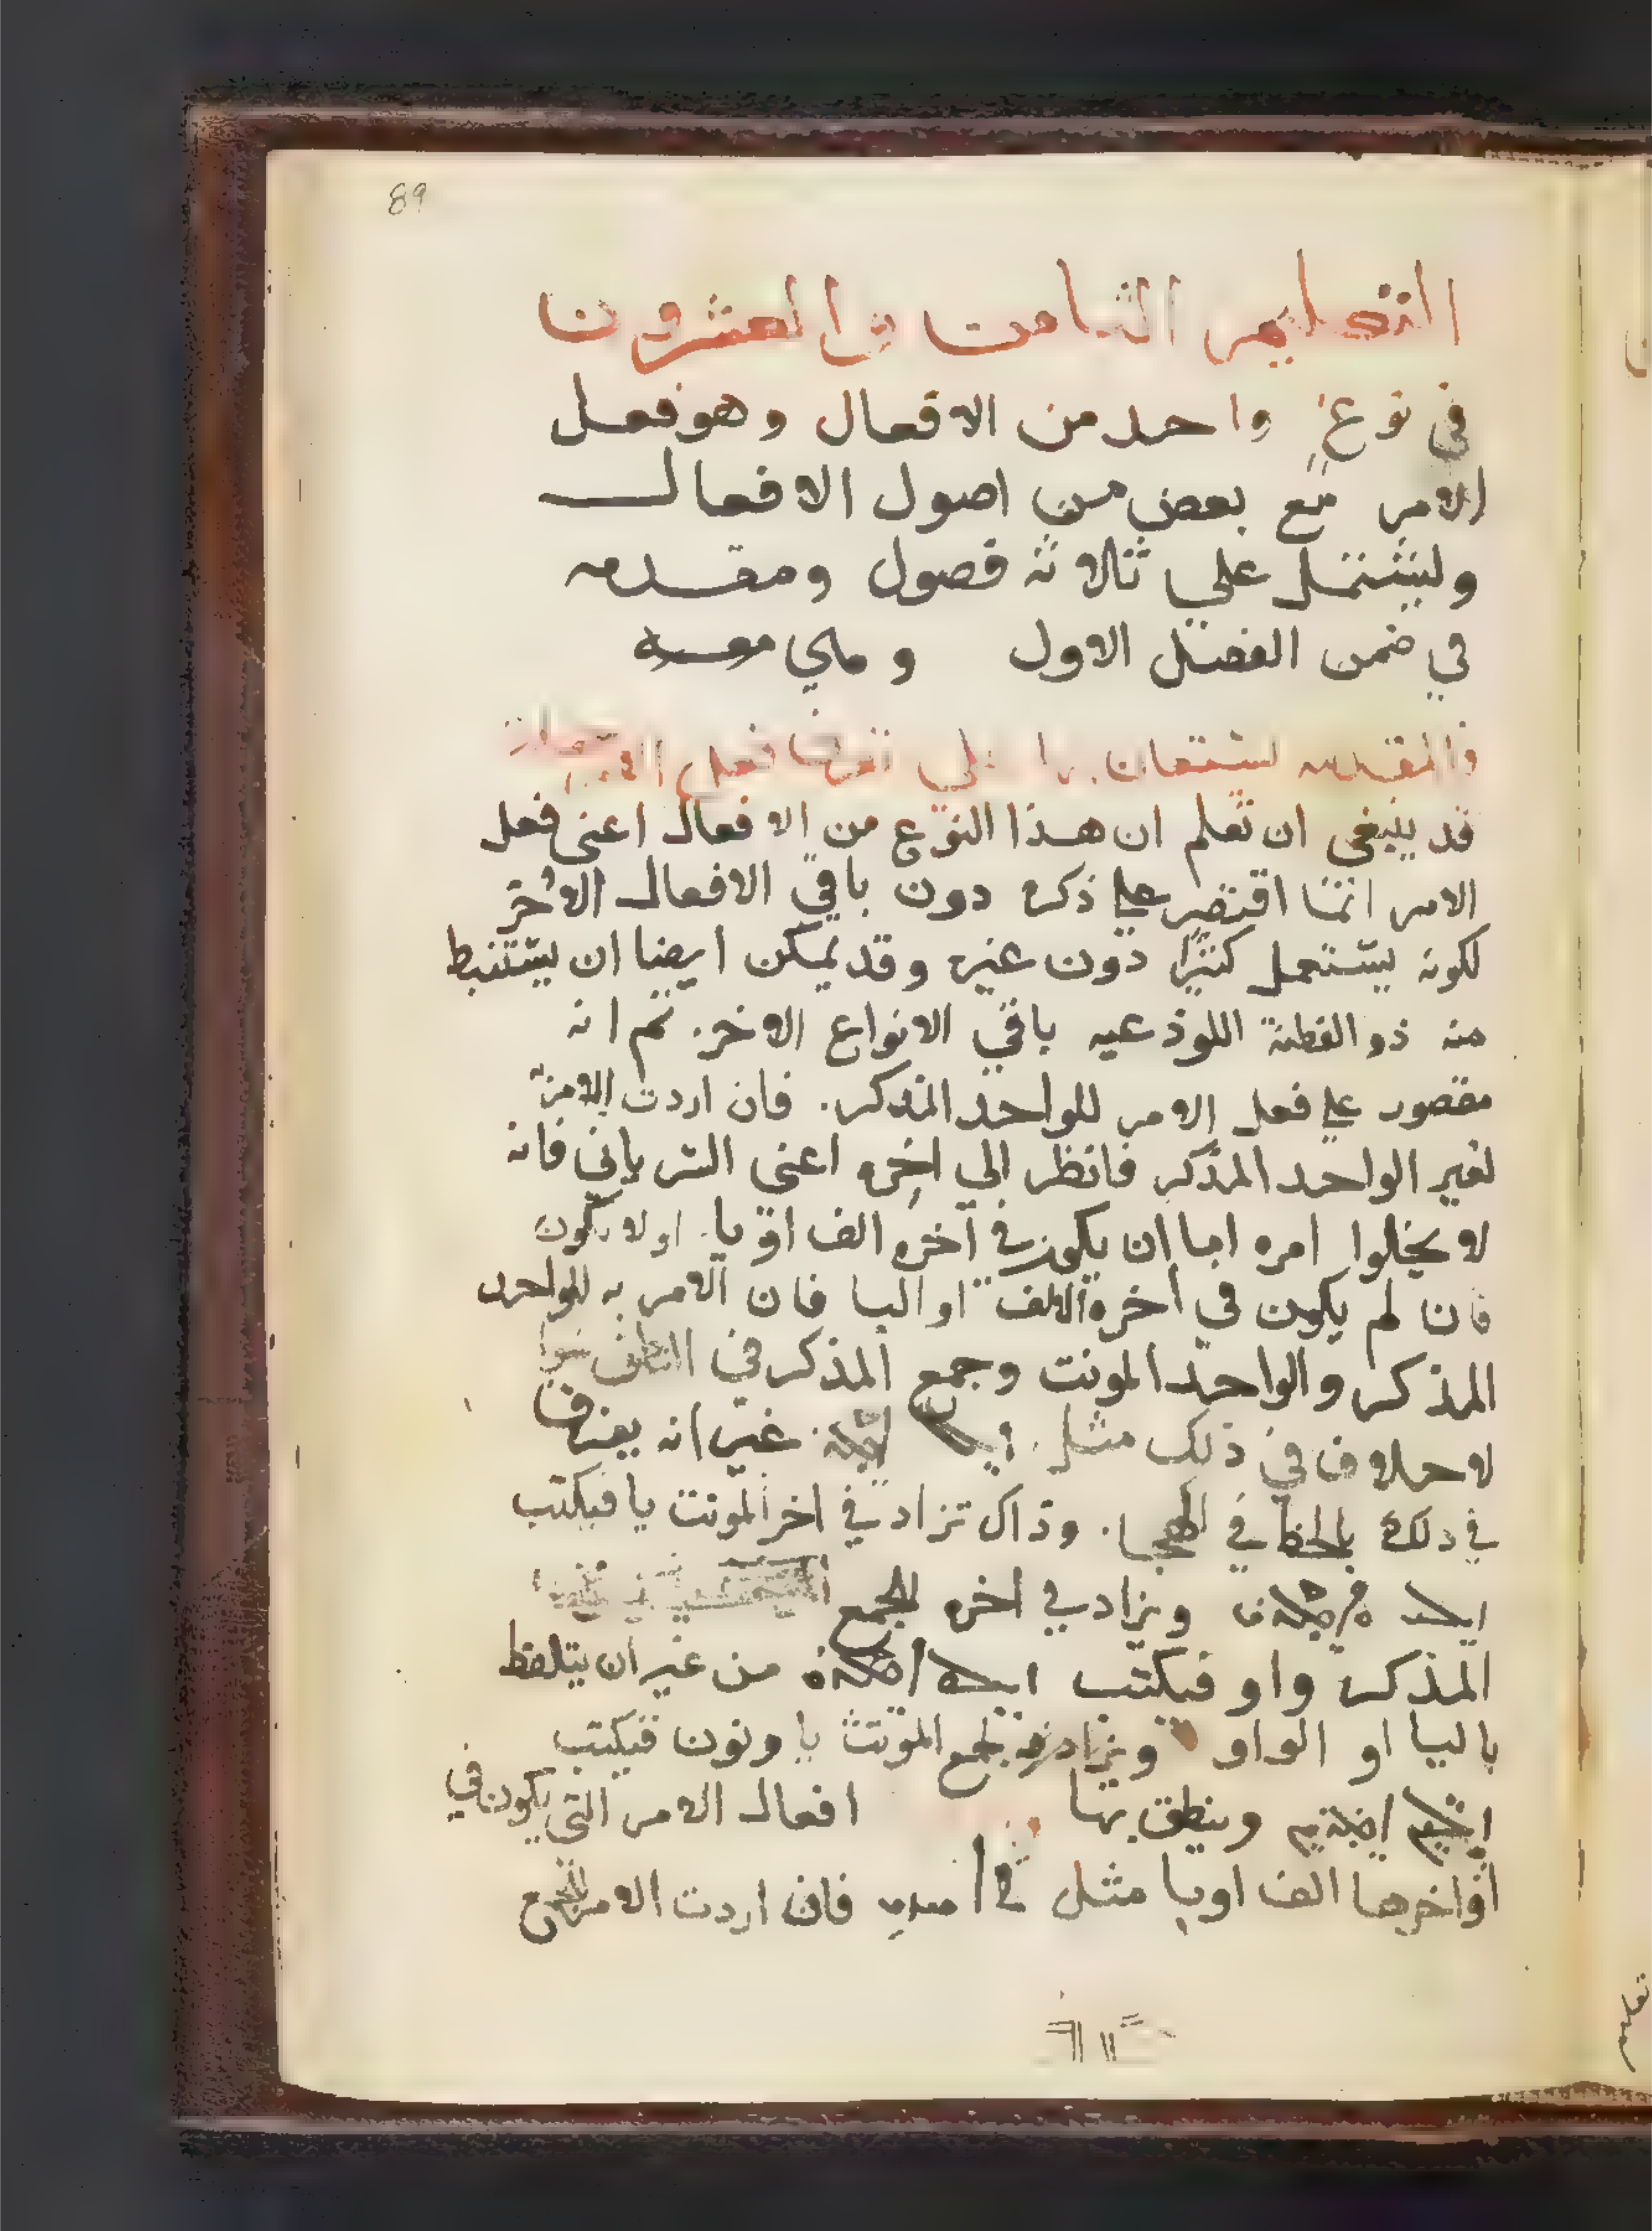 89
التعليم الثامن والعشرون
في نوع واحد من الافعال وهو فعل
الامر مع بعض من اصول الافعال
ويشتمل علي ثلاثة فصول ومقدمه
في ضمن الفصل الاول و هي
والمقدمه يستعان بها علي فعل
قد ينبغي ان تعلم ان هذا النوع من الافعال اعني فعل
الامر انما اقتصر علي ذكره دون باقي الافعال الاخر
لكونه يستعمل كثيرا دون غيره وقد يمكن ايضا ان يستنبط
منه ذو الفطنة اللوذعيه باقي الانواع الاخر. ثم انه
مقصور علي فعل الامر للواحد المذكر. فان اردت الامر
لغير الواحد المذكر فانظر الي اخره اعني السرياني فانه
لا يخلوا امره اما ان يكون في آخره الف او يا. او لا يكون
فان لم يكون في اخره الالف او اليا فان الامر به للواحد
المذكر والواحد المونت وجمع المذكر في النطق سوا
لا خلاف في ذلك مثل غير انه يفرق
في ذلك بالخط في الهجا. وذاك تزاد في اخر المونت يا فيكتب
ويزاد في اخره لجمع
المذكر واو فيكتب من غير ان يتلفظ
باليا او الواو ويزاد لجمع المونث يا ونون فيكتب
وينطق بها افعال الامر التي يكون في
اواخرها الف اويا مثل فان اردت الامر